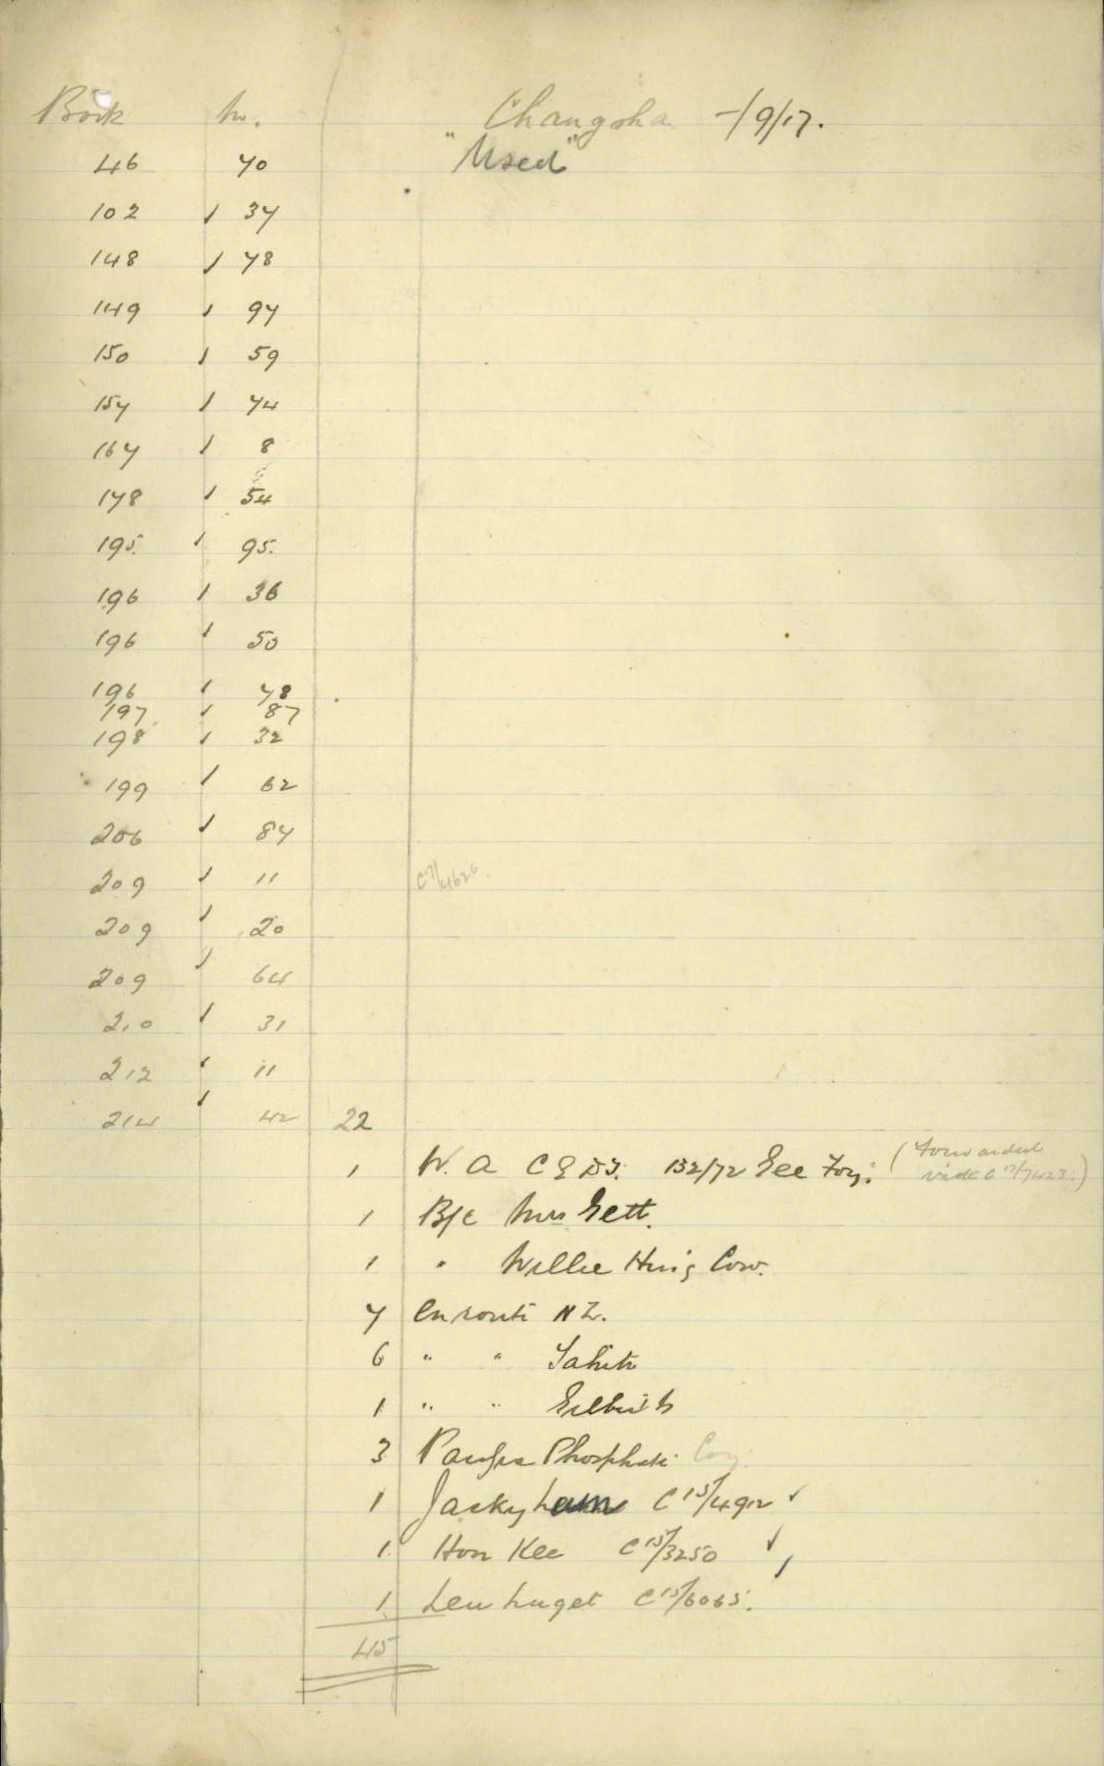 Book No. Changsha -/9/17.
46 70 "Used"
102 / 37
148 / 78
149 / 97
150 / 59
157 / 74
167 / 8
178 / 54
195 / 95.
196 / 36
196 / 50
196 / 78
197 / 87
198 / 32
199 / 62
206 / 87
209 / 11 C17/4626.
209 / 20
209 / 64
210 / 31
212 / 11
214 / 42 22
1 W. A C E D T. 132/72 Gee Foy. (Forwarded
vide C 17/7423.)
1 B/c Mrs Gett.
1 " Willie Hing Cow.
7 En route N Z.
6 " " Tahiti
1 " " Gilbert Is
3 Pacific Phosphate Coy.
1 Jacky C 15/4912 ✓
1. Hon Kee C 15/3250 ✓
1 Leu Luget C 15/6065.
45